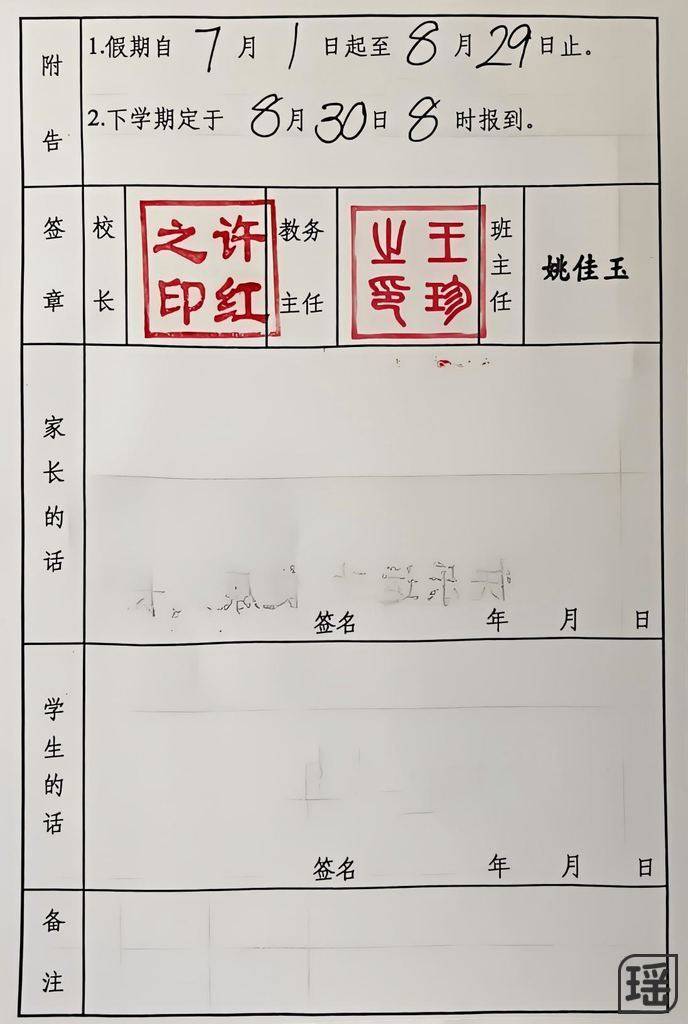 附告
1.假期自 7 月 1 日起至 8 月 29 日止。
2.下学期定于 8 月 30 日 8 时报到。
签章
校长
许红之印
教务主任
王珍之印
班主任
姚佳玉
家长的话
签名 年 月 日
学生的话
签名 年 月 日
备注
瑶